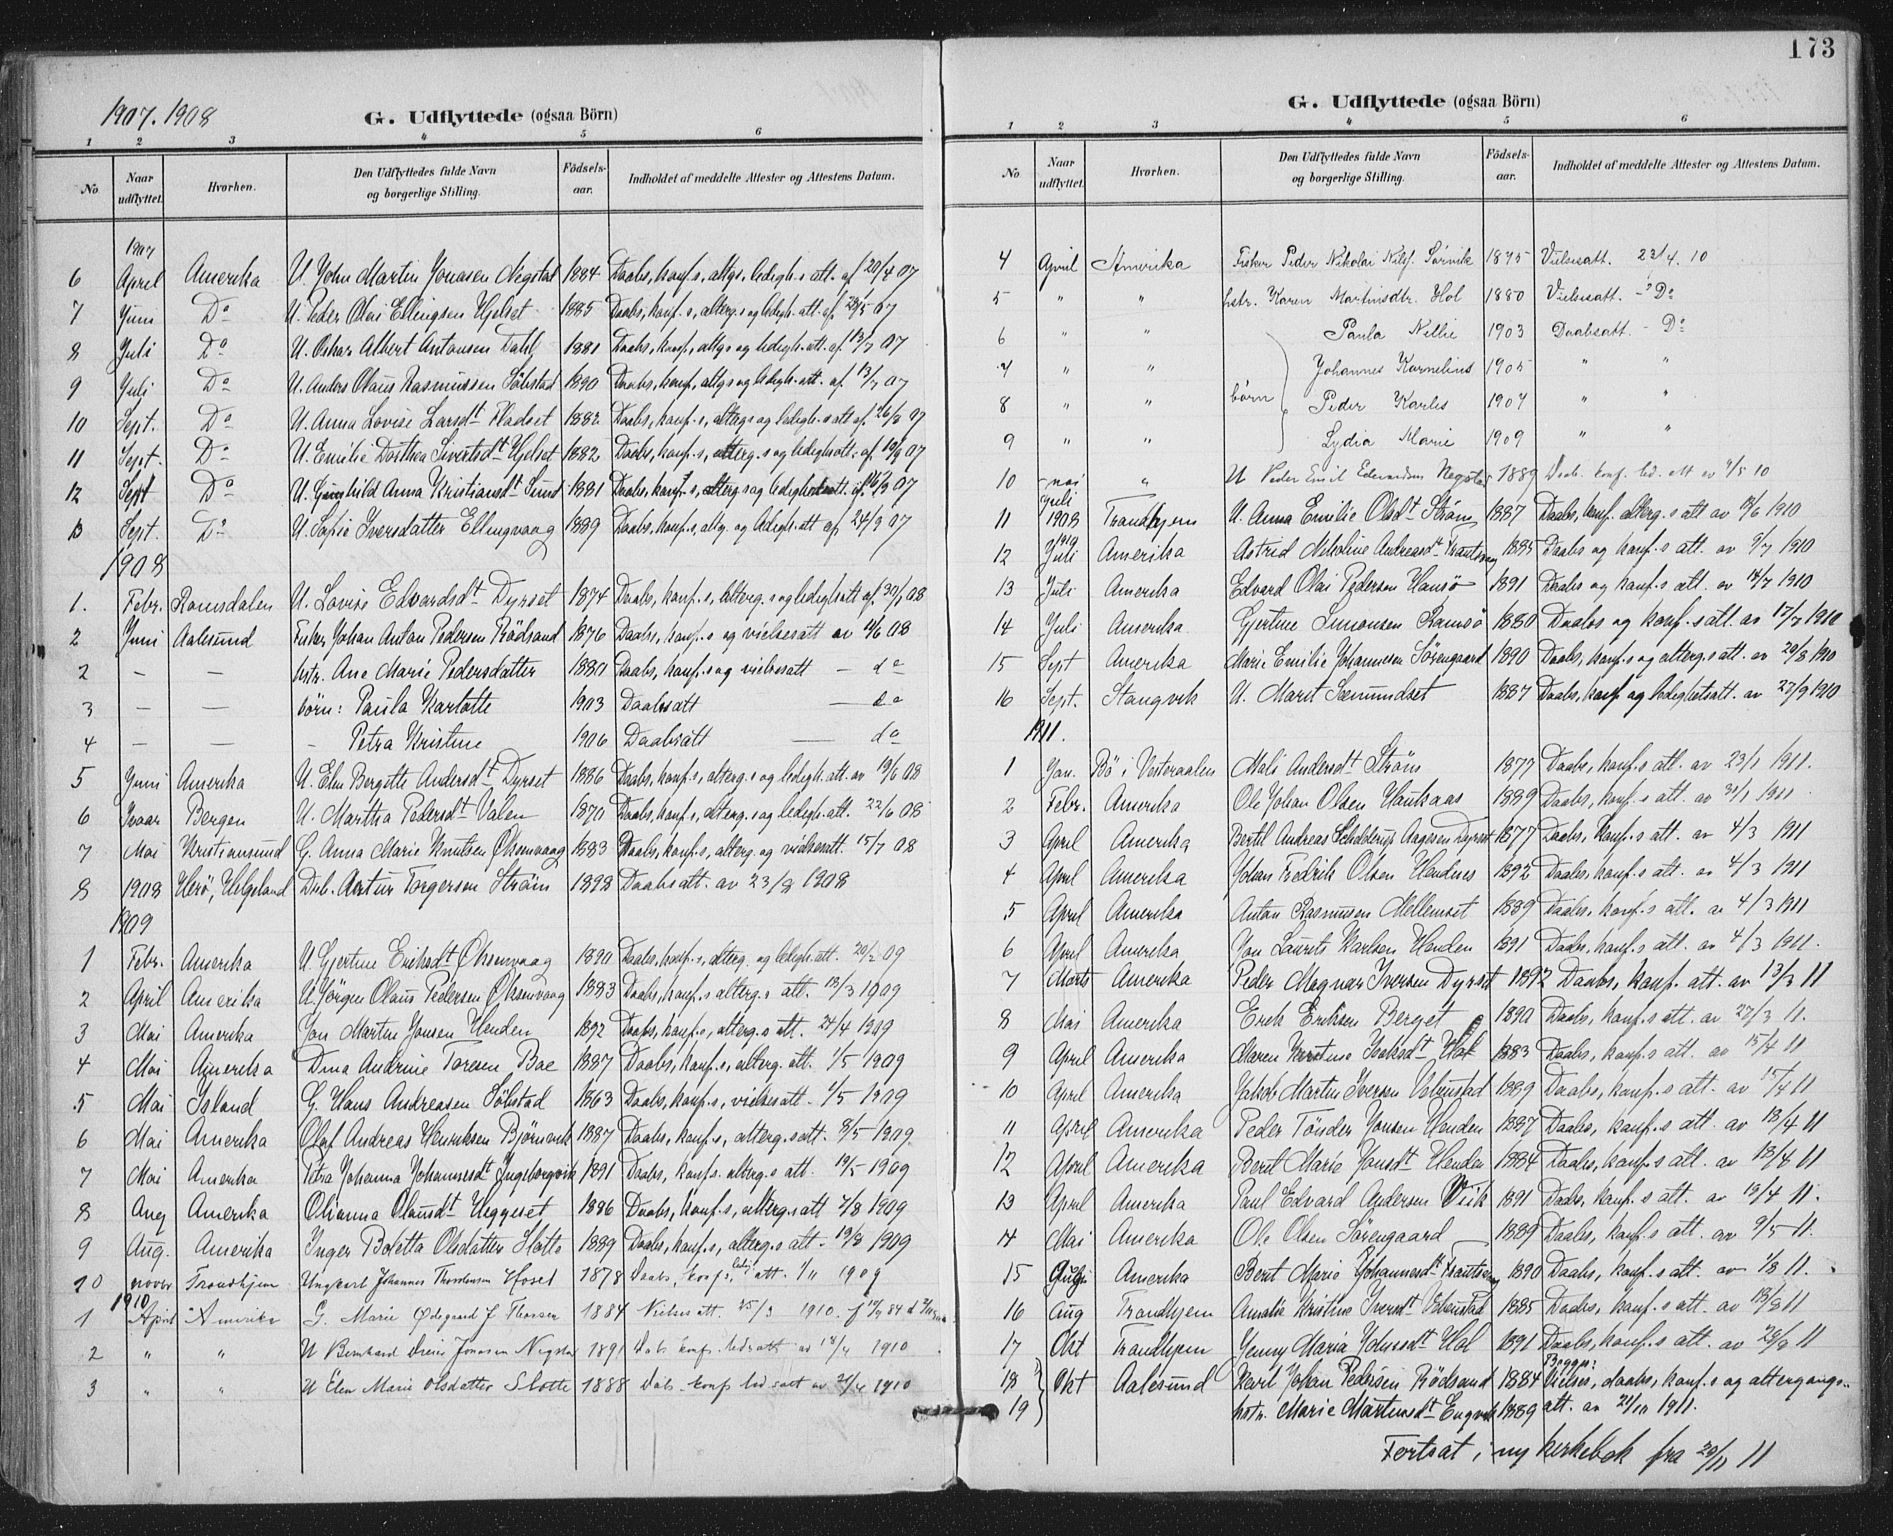 1907. 1908
G. Udflyttede (ogsaa Börn)
1 2 3 4 5 6
No Naar udflyttet. Hvorhen. Den Udflyttedes fulde Navn og borgerlige Stilling. Födsels-aar. Indholdet af meddelte Attester og Attestens Datum.
1907
6 April Amerika U. John Martin Jonasen Negstad 1884 Daabs, konf.s, altgs, ledigh.s att. af 20/4 07
7 Juni Do U. Peder Olai Ellingsen Hjelset 1885 Daabs, konf.s, alterg.s og ledigh. att. af 07
8 Juli Do U. Oskar Albert Antonsen Dahl 1881 Daabs, konf., altgs og ledigh. att. af 13/7 07
9 Juli Do U. Anders Olaus Rasmussen Sölstad 1890 Daabs, konf., altgs og ledigh. att. af 13/7 07
10 Sept. Do U. Anna Lovise Larsdt Fladset 1882 Daabs, konf.s, alterg.s og ledigh.s att af 26/8 07
11 Sept. Do U. Emilie Dorthea Sivertsdt Hjelset 1882 Daabs, konf.s, alterg.s og ledighs att. af 07
12 Sept Do U. Gunhild Anna Kristiansdt Sund 1881 Daabs, konf.s, alterg.s og ledighetsatt. af 07
13 Sept. Do U. Sofie Iversdatter Ellingvaag 1889 Daabs, konf.s, altg. og ledigh. att af 24/9 07
1908
1. Febr. Romsdalen U. Lovise Edvardsdt Dyrset 1874 Daabs, konf.s, alterg.s og ledighs att af 30/1 08
2 Juni Aalesund Fisker Johan Anton Pedersen Rödsand 1876 Daabs, konf.s og vielsesatt av 11/6 08
2 — — hstr. Ane Marie Pedersdatter 1880 Daabs, konf.s og vielsesatt — do
3 — — börn: Paula Karlotte 1903 Daabsatt — do
4 — — - Petra Kristine 1906 Daabsatt — do
5 Juni Amerika U. Elen Bergitte Andersdt Dyrset 1886 Daabs, konf.s, alterg.s og ledigh. att. av 19/6 08
6 Bergen U. Martha Pedersdt Valen 1870 Daabs, konf.s, alterg.s og ledigh. att. 22/6 08
7 Mai Kristiansund G. Anna Marie Knutsen Oksenvaag 1883 Daabs, konf.s, alterg. og vielsesatt. 15/7 08
8 1908 Herö, Helgeland Artur Torgersen Ström 1898 Daabsatt. av 23/8 1908
1909
1 Febr. Amerika U. Gjertine Eriksdt Oksenvaag 1890 Daabs, konf.s, alterg. og ledigh. att. 20/2 09
2 April Amerika U. Jörgen Olaus Pedersen Oksenvaag 1883 Daabs, konf.s alterg.s att. 13/3 1909
3 Mai Amerika Jon Martin Jonsen Henden 1892 Daabs, konf.s, alterg.s att. 24/4 1909
4 Mai Amerika Dina Andrine Toresen Boe 1887 Daabs, konf.s, alterg. att. 1/5 1909
5 Mai Island G. Hans Andreasen Sölstad 1863 Daabs, konf.s, vielsesatt. 1/5 1909
6 Mai Amerika Olaf Andreas Henriksen Björnvik 1887 Daabs, konf.s, alterg.s att. 8/5 1909.
7 Mai Amerika Petra Johanna Johannesdt Ingeborgvik 1891 Daabs, konf.s. alterg.s att. 19/5 1909
8 Aug Amerika Olianna Olausdt Heggeset 1886 Daabs, konf.s, alterg.s att 7/8 1909
9 Aug. Amerika Inger Boletta Olsdatter Slotte 1889 Daabs, konf.s, alterg.s att. 19/8 1909
10 nover Trondhjem Ungkarl Johannes Thorstensen Hoset 1878 Daabs, konf.s, att. 1/11 1909
1910
1 April Amerika G. Marie Ødegaard f Thorsen 1884 Vielses att. 25/3 1910.
2 " " U Bernhard Jonasen Negstad 1891 Dab. konf. led att av 18/4 1910
3 " " U Elen Marie Olsdatter Slotte 1888 Dab. konf led att av 21/4 1910
173
G. Udflyttede (ogsaa Börn)
1 2 3 4 5 6
No Naar udflyttet. Hvorhen. Den Udflyttedes fulde Navn og borgerlige Stilling. Födsels-aar. Indholdet af meddelte Attester og Attestens Datum.
4 April Amerika Fisker Peder Nikolai Nilsf. Sørvik 1875 Vielsesatt. 23/4. 10
5 " " hstr. Karen Martinsdtr. Hol 1880 Vielsesatt. - Do
6 " " Paula Nellie 1903 Daabsatt. - Do
7 " " Johannes Kornelius 1905 " "
8 " " børn Peder Karlis 1907 " "
9 " " Lydia Marie 1909 " "
10 mai " U Peder Emil Edvardsen Negstad 1889 Dab. konf. led. att av 7/5 10
11 Juli 1908 Trondhjem U. Anna Emilie Olsdt Strøm 1887 Daabs, konf. alterg.s att av 13/6 1910
12 1910 Juli Amerika Astrid Nikoline Andreasdt 1885 Daabs og konf.s att. av 9/7 1910
13 Juli Amerika Edvard Olai Pedersen Hansö 1891 Daabs og konf.s att. av 14/7 1910
14 Juli Amerika Gjertine Simonsen Ramsö 1880 Daabs og konf.s att. av 17/7 1910
15 Sept Amerika Marie Emilie Johannesen Sörengaard 1890 Daabs, konf.s og alterg.s att. av 20/8 1910
16 Sept. Stangvik U. Marit Sæmundset 1887 Daabs, konf og ledighetsatt. av 27/9 1910
1911.
1 Jan. Bö i Vesteraalen Mali Andersdt Ström 1877 Daabs, konf.s att. av 23/1 1911.
2 Febr. Amerika Ole Johan Olsen Haukaas 1889 Daabs, konf.s att. av 31/1 1911.
3 April Amerika Bertil Andreas Schelderup Aagesen Dyrset 1877 Daabs, konf.s att. av 4/3 1911
4 April Amerika Johan Fredrik Olsen Hendnes 1892 Daabs, konf.s att. av 4/3 1911
5 April Amerika Anton Rasmusen Mellemset 1889 Daabs, konf.s att. av 4/3 1911
6 April Amerika Jon Laurits Karlsen Henden 1891 Daabs, konf.s att. av 4/3 1911.
7 Marts Amerika Peder Magnar Iversen Dyrset 1892 Daabs, konf. att. av 13/3 11
8 Mai Amerika Erik Eriksen Berget 1890 Daabs, konf.s att. av 27/3 11.
9 April Amerika Maren Kristine Isaksdt Hol 1883 Daabs, konf.s att. av 15/4 11
10 April Amerika Jakob Martin Iversen Vebenstad 1889 Daabs, konf.s att. av 15/4 11
11 April Amerika Peder Tönder Jonsen Henden 1887 Daabs, konf.s att. av 18/4 11
12 April Amerika Berit Marie Jonsdt Henden 1884 Daabs, konf.s att. av 18/4 11
13 April Amerika Paul Edvard Andersen Vik 1891 Daabs, konf.s att. av 19/4 11.
14 Mai Amerika Ole Olsen Sörengaard 1889 Daabs, konf.s att. av 9/5 11.
15 Amerika Berit Marie Johannesdt 1890 Daabs, konf.s att. av 1/8 11.
16 Aug Trondhjem Amalie Kristine Iversdt Vebenstad 1885 Daabs, konf.s att. av 18/8 11
17 Okt Trondhjem Jenny Maria Johnsdt Hol 1891 Daabs, konf.s att. av 29/9 11
18 Okt Aalesund Karl Johan Pedersen Rödsand 1884 Begge: Vielses, daabs, konf.s og altergangs-
19 hstr. Marie Martinsdt Engvik 1889 att. av 21/10 1911.
Fortsat i ny kirkebok fra 20/11 11